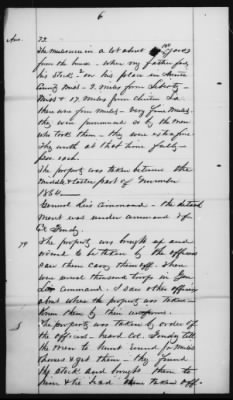 6
Ans. 72
The mules were in a lot about 100 yards
from the house - when my father fed
his stock - on his place in Amite
County Miss - 9 miles from Liberty -
Miss & 17 miles from Clinton La
there was four mules - very fine mules
they were pronounced so by the men
who took them - they were extra fine
They worth at that time fully
each.
The property was taken between the
middle & latter part of November
1864 -
General Lee's Command - the detach
ment was under command of
Col Fonda.
79
The property was brought up and
seemed to be taken by the officers
saw them carry them off. There
were several thousand troops in Gen
Lees command. I saw other officers
about when the property was taken -
knew them by their uniforms.
5
The property was taken by order of
the officers - heard Col. Fonda tell
the men to hunt round for mules
horses & get them - they found
the stock and brought them to
him & he had them taken off.